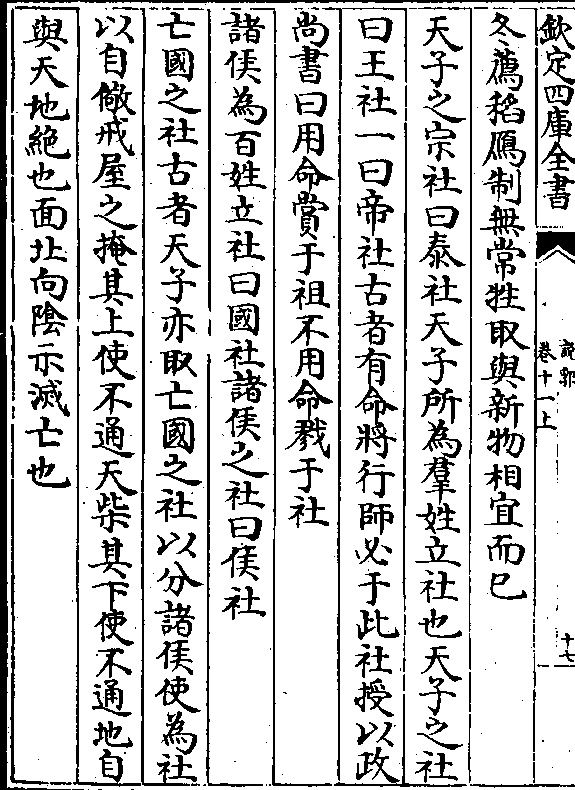 欽定四庫全書
說郛
卷十一上
十七
冬薦稻鴈制無常牲取與新物相宜而已
天子之宗社曰泰社天子所為羣姓立社也天子之社
曰王社一曰帝社古者有命將行師必于此社授以政
尚書曰用命賞于祖不用命戮于社
諸侯為百姓立社曰國社諸侯之社曰侯社
亡國之社古者天子亦取亡國之社以分諸侯使為社
以自儆戒屋之掩其上使不通天柴其下使不通地自
與天地絕也面北向陰示滅亡也